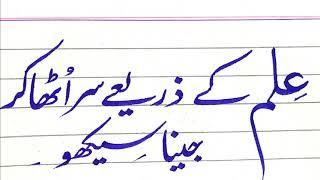 عِلم کے ذریعے سر اُٹھا کر
جینا سِیکھو ۔